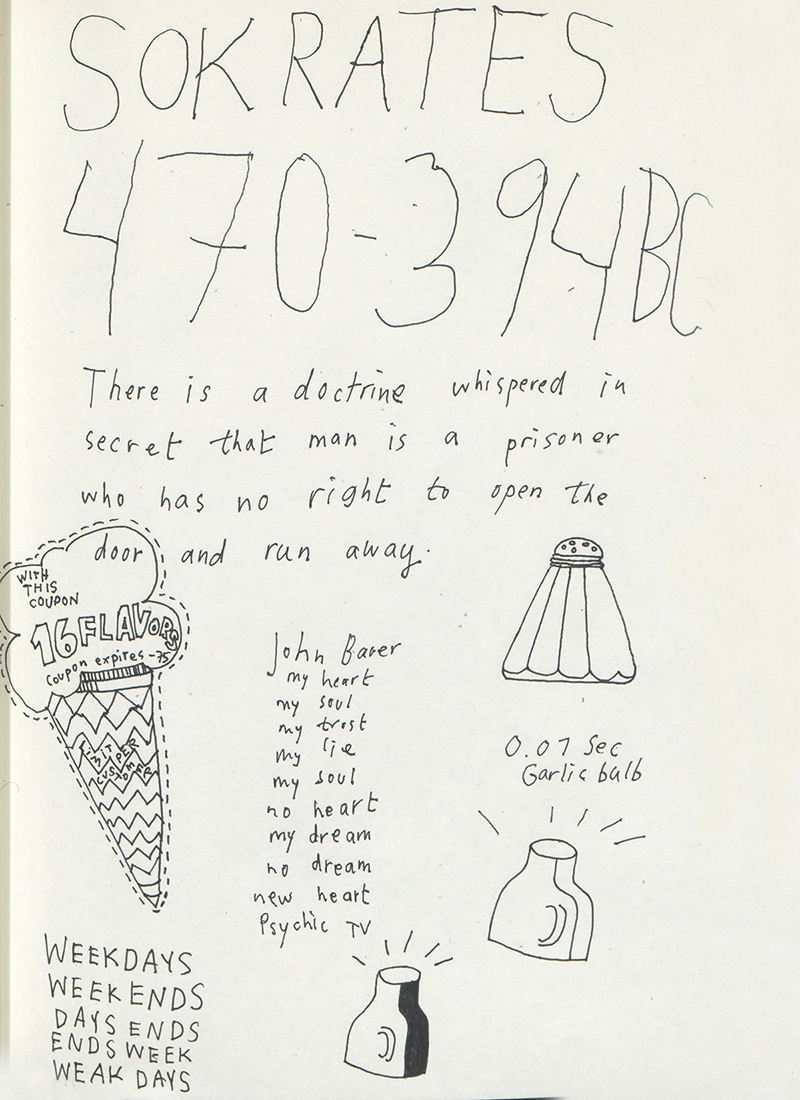 SOKRATES
470-394BC
There is a doctrine whispered in
secret that man is a prisoner
who has no right to open the
door and run away.
WITH
THIS
COUPON
16 FLAVORS
coupon expires -75
LIMIT PER
CUSTOMER
John Baver
my heart
my soul
my trust
my lie
my soul
no heart
my dream
no dream
new heart
Psychic TV
0.07 Sec
Garlic bulb
WEEKDAYS
WEEKENDS
DAYS ENDS
ENDS WEEK
WEAK DAYS